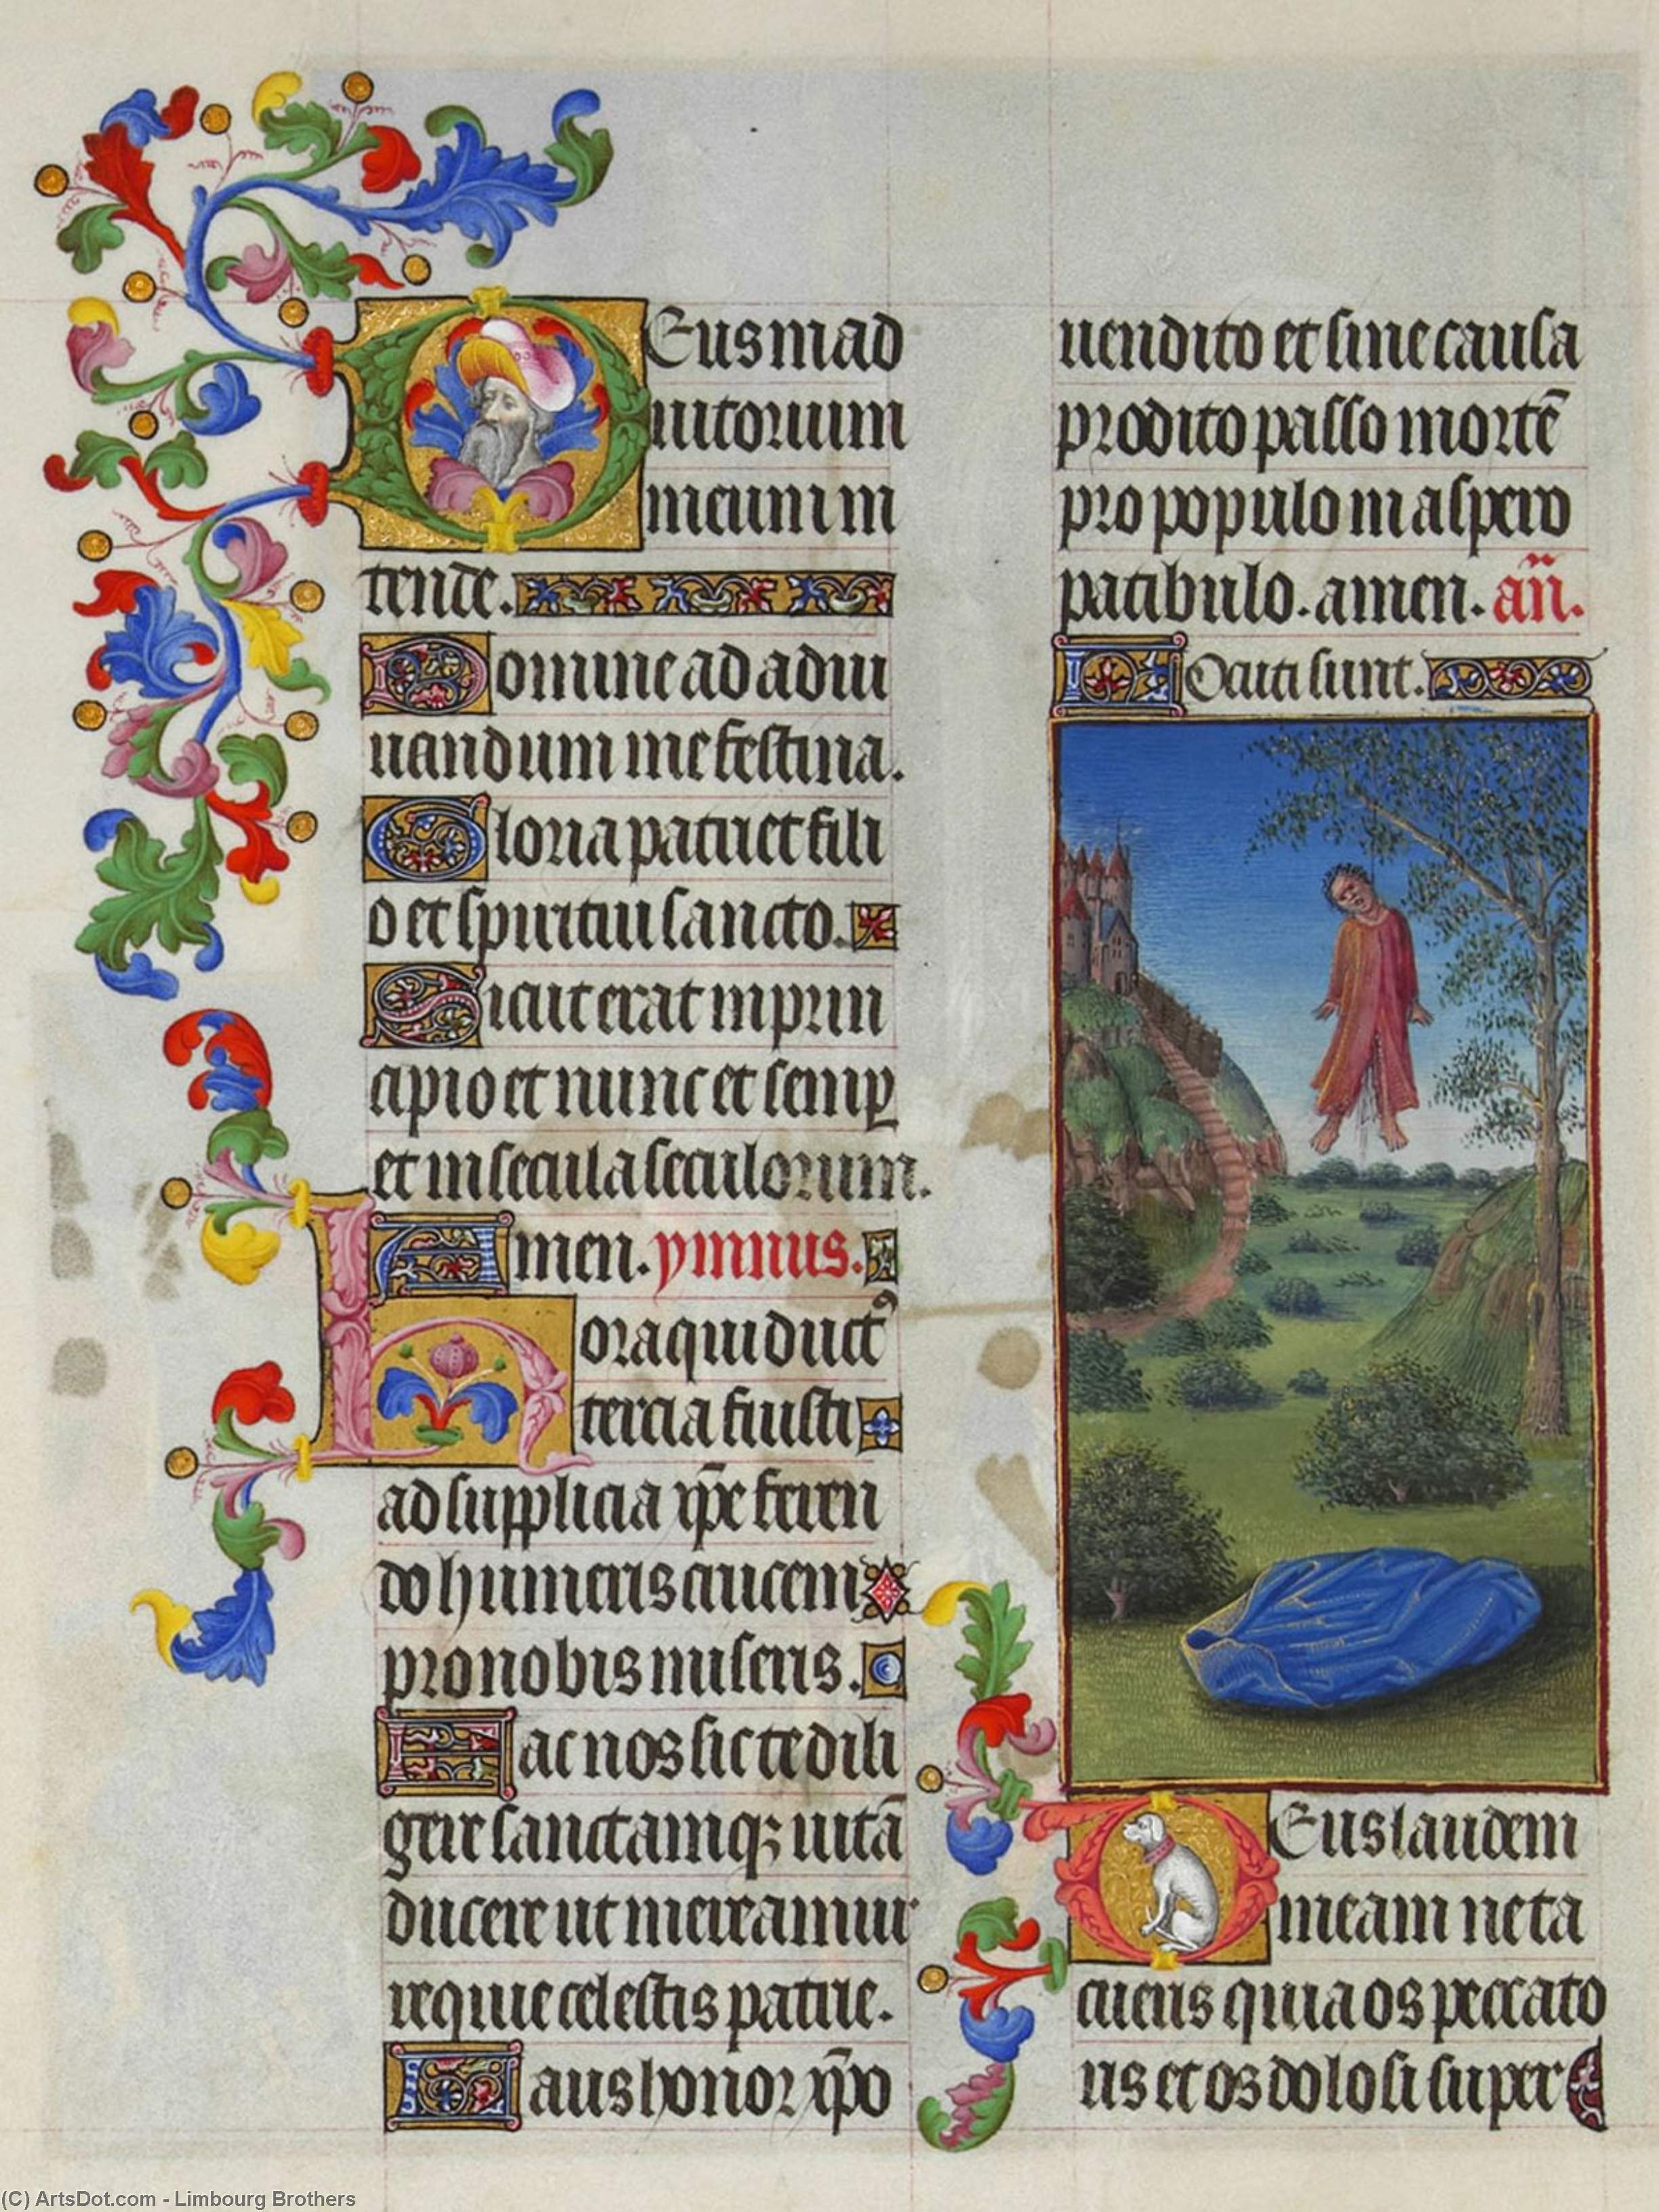 Deus in ad
iutorium
meum in
tende.
Domine ad adiu
uandum me festina.
Gloria patri et fili
o et spiritui sancto.
Sicut erat in prin
cipio et nunc et semp
et in secula seculorum.
Amen. ymnus.
Hora qui duct9
tercia fuisti
ad supplicia xp̄e feren
do humeris crucem
pro nobis miseris.
Fac nos sic te dili
gere sanctamq; uitā
ducere ut mereamur
requie celestis patrie.
Laus honor xp̄o
uendito et sine causa
prodito passo mortē
pro populo in aspero
patibulo. amen. an̄.
Locuti sunt.
Deus laudem
meam ne ta
cueris quia os peccato
ris et os dolosi super
(C) ArtsDot.com - Limbourg Brothers